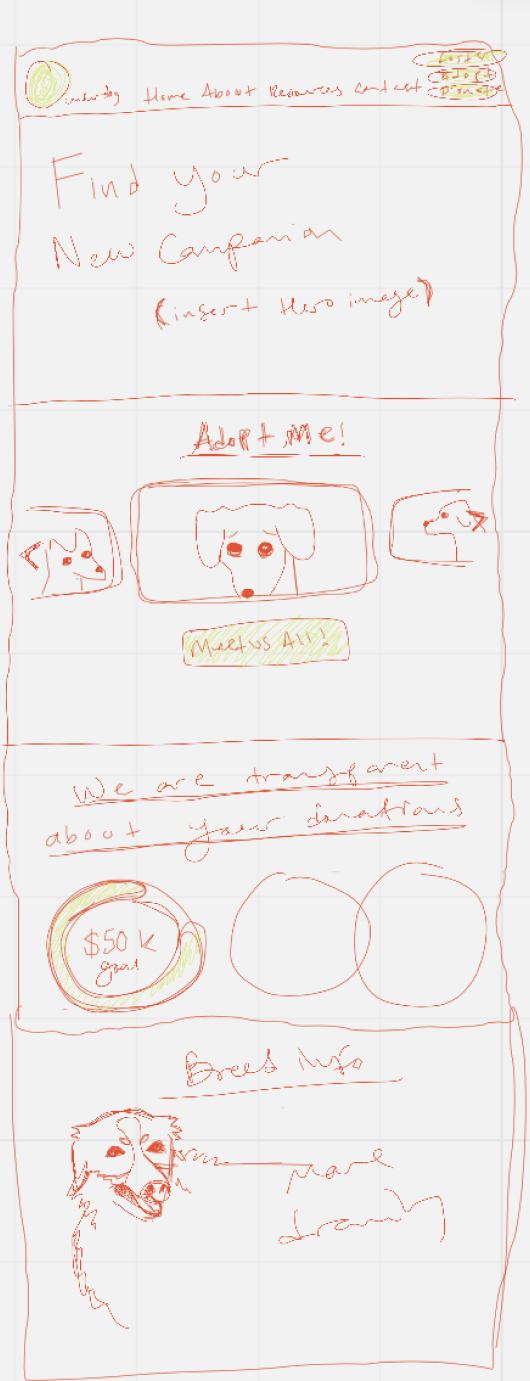 Foster
Home About Resources Contact Adopt
Donate
Find your
New Companion
(insert Hero image)
Adopt Me!
Meet us All!
We are transparent
about your donations
$50 K
goal
Breed info
More